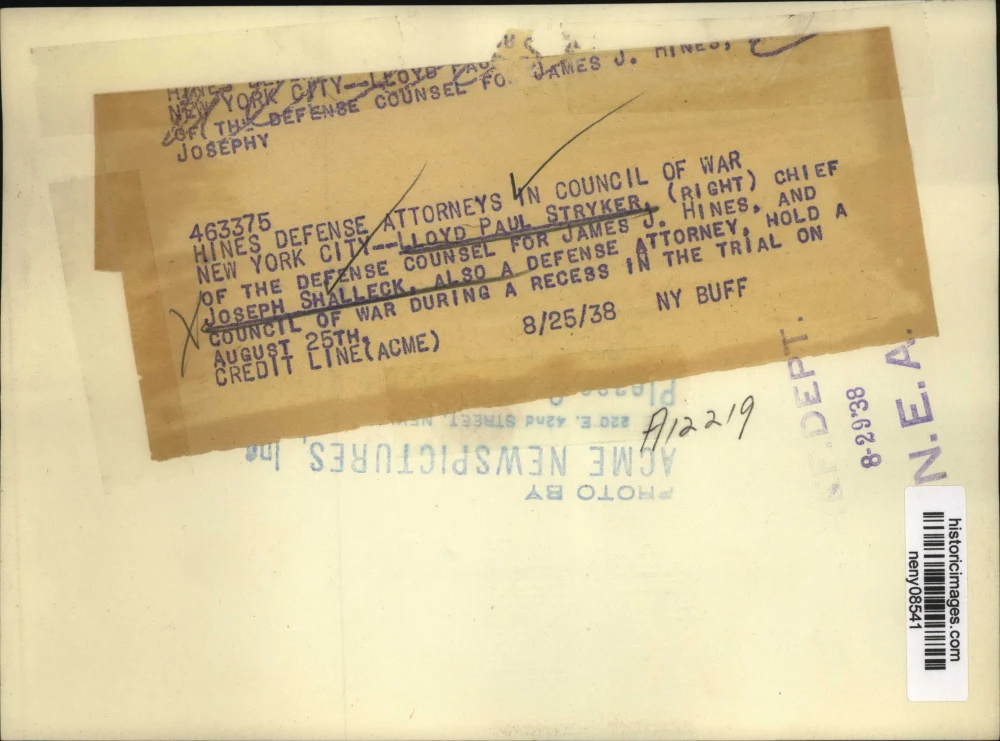 NEW YORK CITY--LLOYD PAU
OF THE DEFENSE COUNSEL FO JAMES J. HINES,
JOSEPHY
463375
HINES DEFENSE ATTORNEYS IN COUNCIL OF WAR
NEW YORK CITY--LLOYD PAUL STRYKER, (RIGHT) CHIEF
OF THE DEFENSE COUNSEL FOR JAMES J. HINES, AND
JOSEPH SHALLECK, ALSO A DEFENSE ATTORNEY, HOLD A
COUNCIL OF WAR DURING A RECESS IN THE TRIAL ON
AUGUST 25TH.
CREDIT LINE(ACME) 8/25/38 NY BUFF
A12219
PHOTO BY
ACME NEWSPICTURES, Inc
220 E. 42nd STREET, NEW
Please
DEPT.
8-29-38
N.E.A.
historicimages.com
neny08541